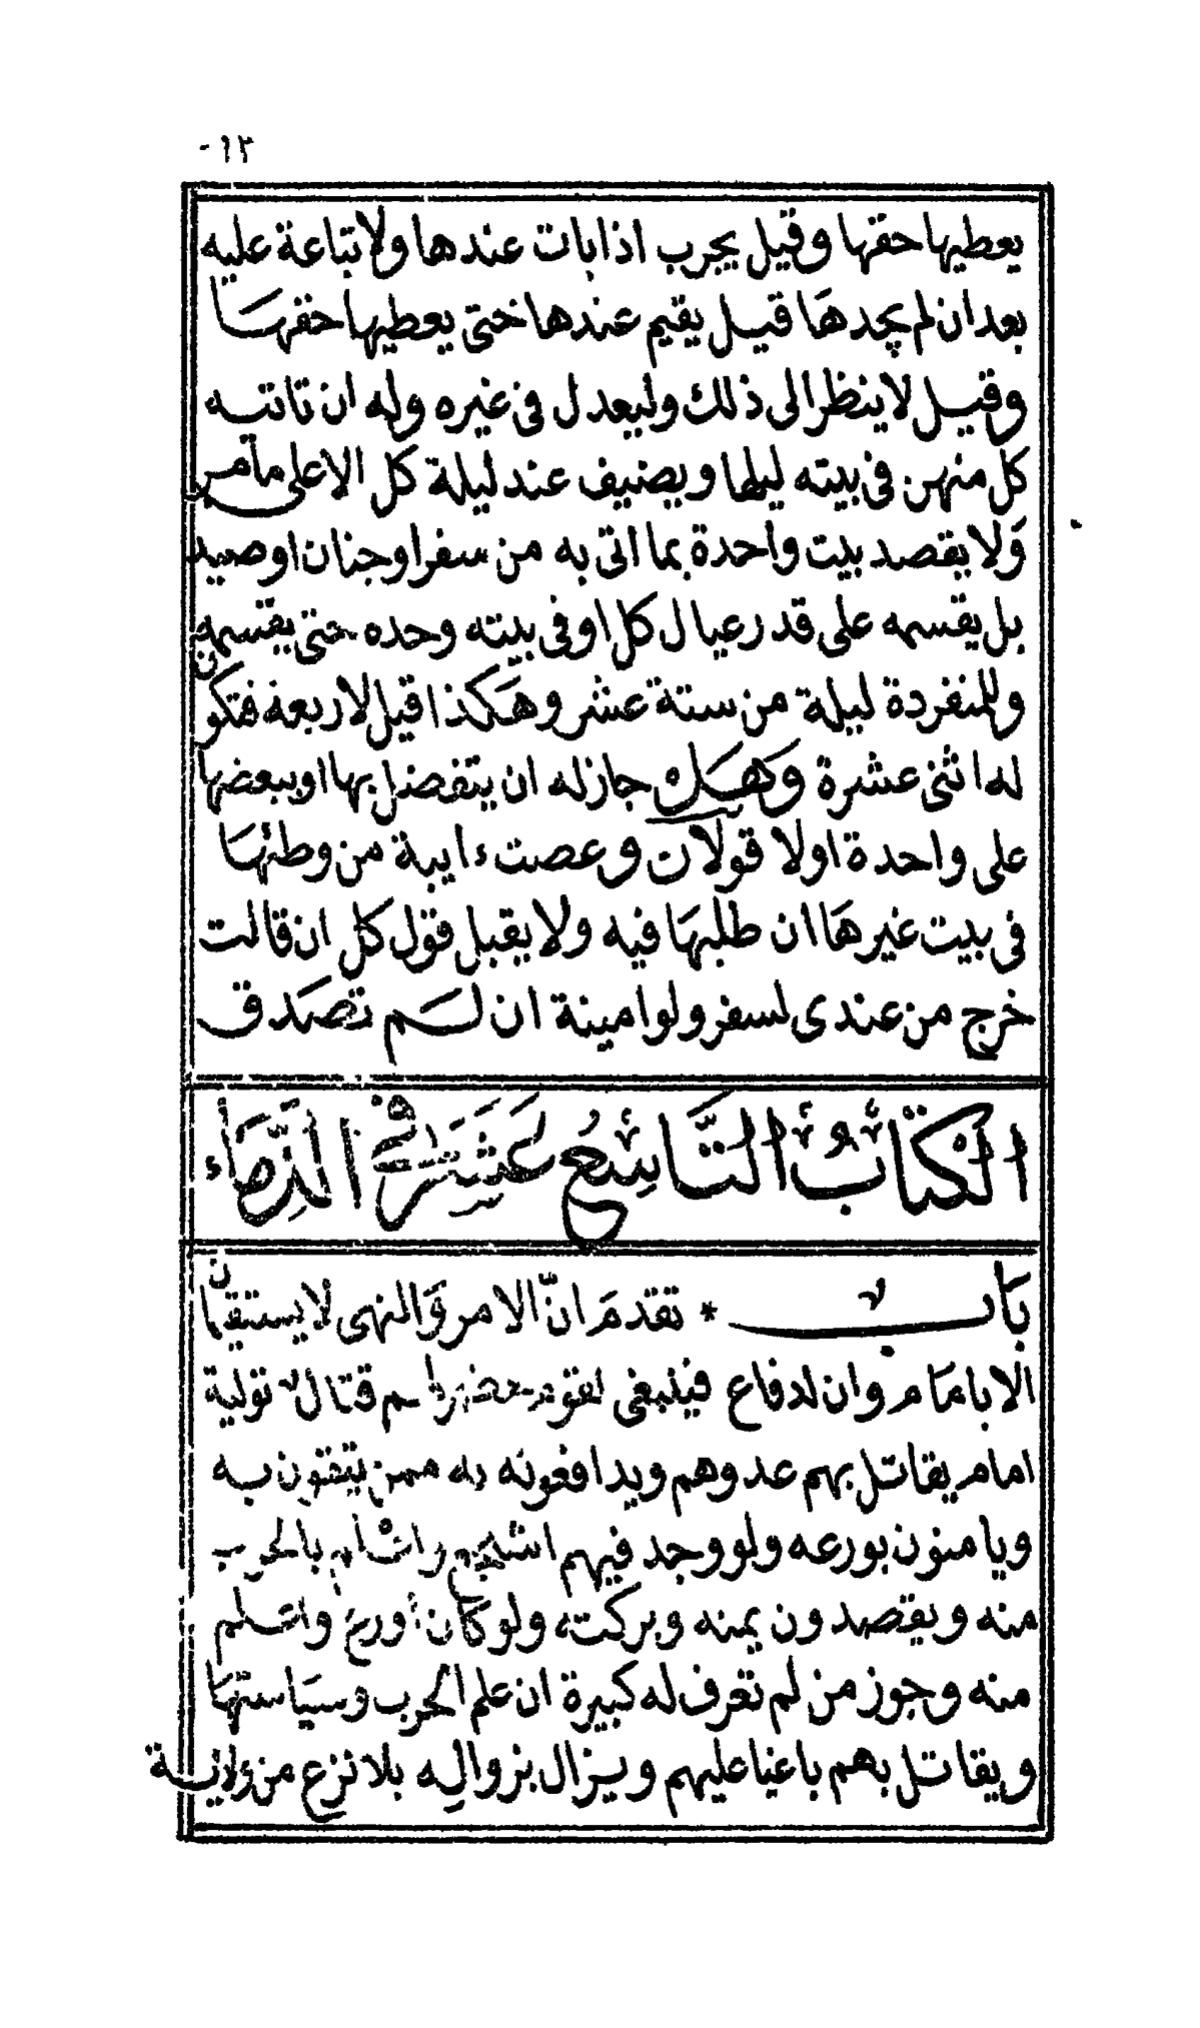 ١٢-
يعطيها حقها وقيل يجرب اذا بات عندها ولا تباعة عليه
بعد ان لم يجدها قيل يقيم عندها حتى يعطيها حقها
وقيل لا ينظر الى ذلك وليعدل فى غيره وله ان تاتيه
كل منهن فى بيته ليلها ويصنيف عند ليلة كل الا على مامر
ولا يقصد بيت واحدة بما اتى به من سفر او جنان او صيد
بل يقسمه على قدر عيال كل او فى بيته وحده حتى يقسمه
وللمنفردة ليلة من ستة عشر وهكذا قيل لاربعة فتكون
له اثنى عشرة وهل جاز له ان يتفضل بها او ببعضها
على واحدة اولا قولان وعصت ءايبة من وطئها
فى بيت غيرها ان طلبها فيه ولا يقبل قول كل ان قالت
خرج من عندى لسفر ولو امينة ان لم تصدق
الكتاب التاسع عشر فى الدماء
باب * تقدم ان الامر والنهى لا يستقيمان
الا بامام وان لدفاع فينبغى لقوم حضرهم قتال تولية
امام يقاتل بهم عدوهم ويدافعونه به ممن يتقون به
ويامنون بورعه ولو وجد فيهم اشجع بالحرب
منه ويقصدون يمنه وبركته ولو كان اورع واعلم
منه وجوز من لم تعرف له كبيرة ان علم الحرب وسياستها
ويقاتل بهم باغيا عليهم ويزال بزواله بلا نزع من ولاية